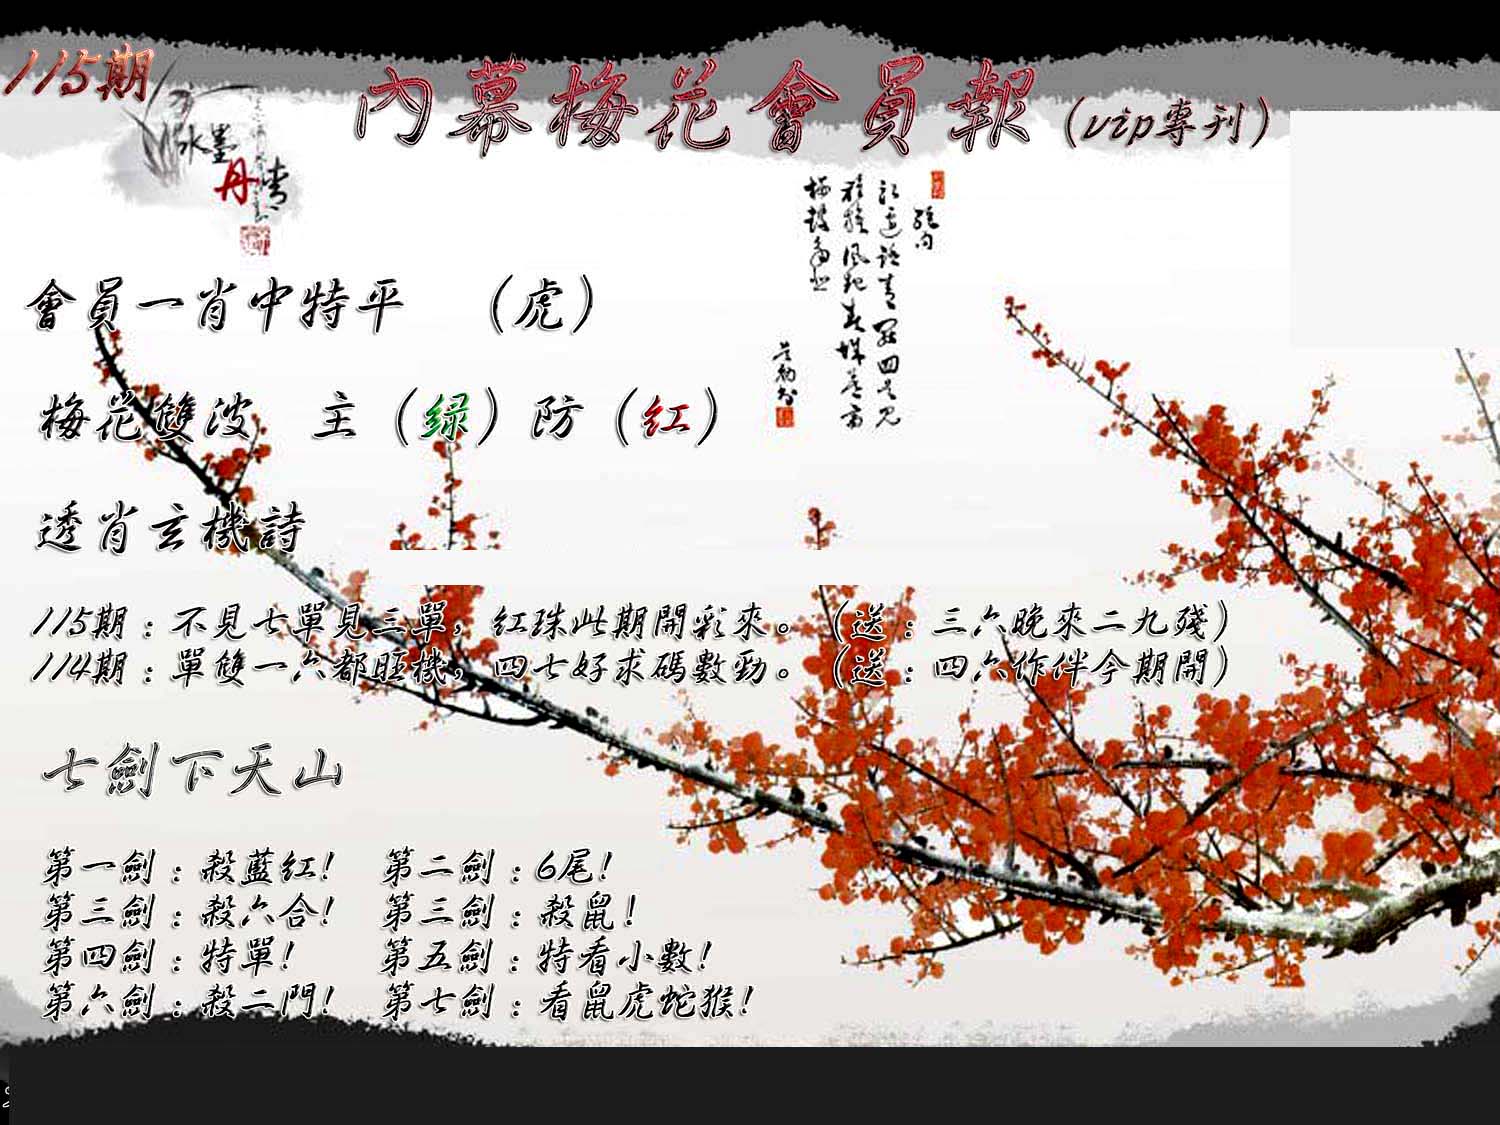 115期
內幕梅花會員報（vip專刊）
水墨
丹青
會員一肖中特平　（虎）
梅花雙波　主（绿）防（红）
透肖玄機詩
115期：不見七單見三單，紅珠此期開彩來。（送：三六晚來二九殘）
114期：單雙一六都旺機，四七好求碼數勁。（送：四六作伴今期開）
七劍下天山
第一劍：殺藍紅!　第二劍：6尾!
第三劍：殺六合!　第三劍：殺鼠!
第四劍：特單!　第五劍：特看小數!
第六劍：殺二門!　第七劍：看鼠虎蛇猴!